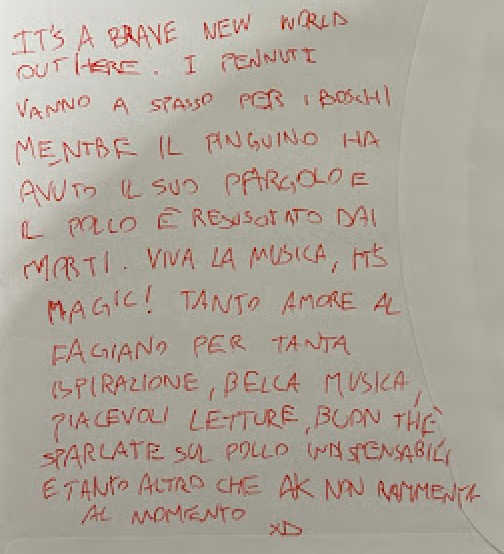 IT'S A BRAVE NEW WORLD
OUT HERE. I PENNUTI
VANNO A SPASSO PER I BOSCHI
MENTRE IL PINGUINO HA
AVUTO IL SUO PARGOLO E
IL POLLO È RESUSCITATO DAI
MORTI. VIVA LA MUSICA, IT'S
MAGIC! TANTO AMORE AL
FAGIANO PER TANTA
ISPIRAZIONE, BELLA MUSICA,
PIACEVOLI LETTURE, BUON THÈ
SPARLATE SUL POLLO INDISPENSABILI
E TANTO ALTRO CHE AK NON RAMMENTA
AL MOMENTO
XD